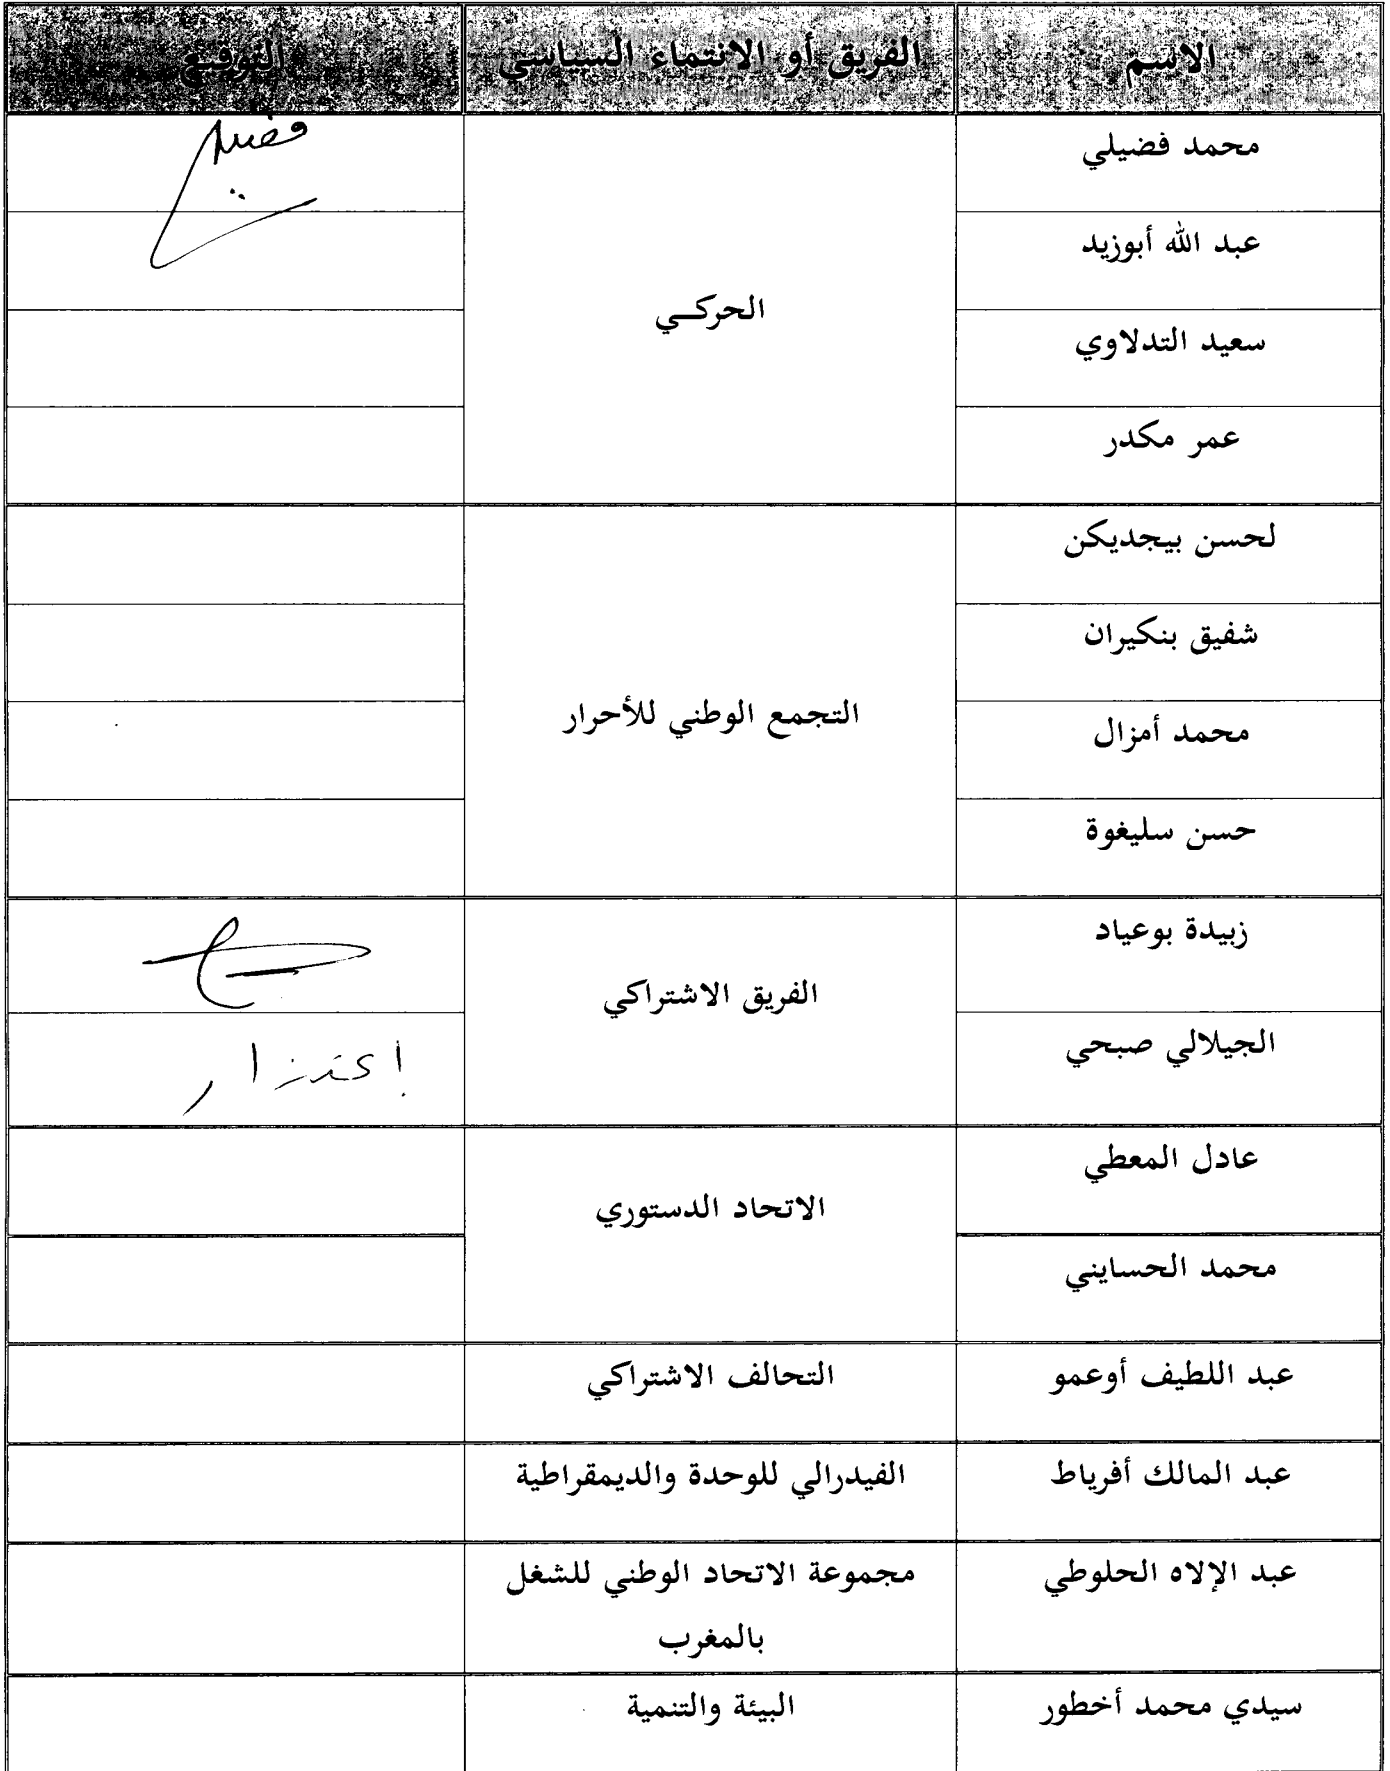 الاسم الفريق أو الانتماء السياسي التوقيع
محمد فضيلي
فضيلي
عبد الله أبوزيد
الحركي
سعيد التدلاوي
عمر مكدر
لحسن بيجديكن
شفيق بنكيران
التجمع الوطني للأحرار
محمد أمزال
حسن سليغوة
زبيدة بوعياد
الفريق الاشتراكي
الجيلالي صبحي
إعتذار
عادل المعطي
الاتحاد الدستوري
محمد الحسايني
عبد اللطيف أوعمو التحالف الاشتراكي
عبد المالك أفرياط الفيدرالي للوحدة والديمقراطية
عبد الإلاه الحلوطي مجموعة الاتحاد الوطني للشغل
بالمغرب
سيدي محمد أخطور البيئة والتنمية